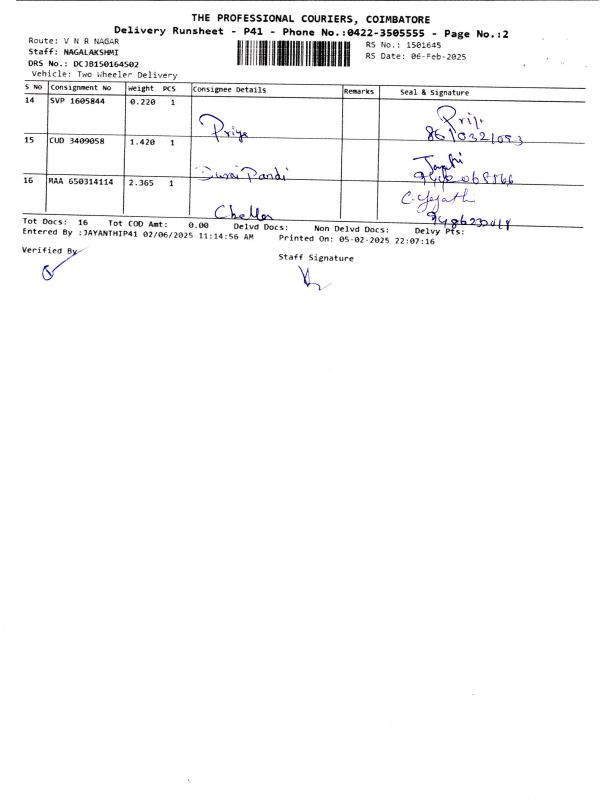 THE PROFESSIONAL COURIERS, COIMBATORE
Delivery Runsheet - P41 - Phone No.:0422-3505555 - Page No.:2
Route: V N R NAGAR
RS No.: 1501645
Staff: NAGALAKSHMI
RS Date: 06-Feb-2025
DRS No.: DCJB150164502
Vehicle: Two Wheeler Delivery
S No Consignment No Weight PCS Consignee Details Remarks Seal & Signature
14 SVP 1605844 0.220 1 Priya
15 CUD 3409058 1.420 1 Durai Pandi
16 MAA 650314114 2.365 1
Tot Docs: 16 Tot COD Amt: 0.00 Delvd Docs: Non Delvd Docs: Delvy Pts:
Entered By :JAYANTHIP41 02/06/2025 11:14:56 AM Printed On: 05-02-2025 22:07:16
Verified By
Staff Signature